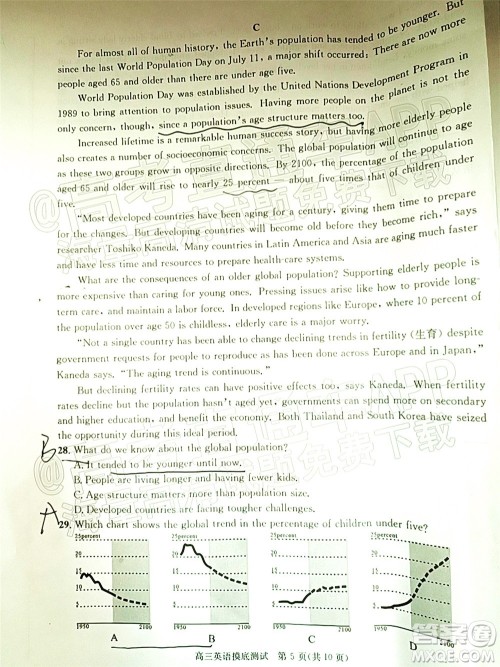 C
For almost all of human history, the Earth's population has tended to be younger. But
since the last World Population Day on July 11, a major shift occurred: There are now more
people aged 65 and older than there are under age five.
World Population Day was established by the United Nations Development Program in
1989 to bring attention to population issues. Having more people on the planet is not the
only concern, though, since a population's age structure matters too.
Increased lifetime is a remarkable human success story, but having more elderly people
also creates a number of socioeconomic concerns. The global population will continue to age
as these two groups grow in opposite directions. By 2100, the percentage of the population
aged 65 and older will rise to nearly 25 percent — about five times that of children under
five.
"Most developed countries have been aging for a century, giving them time to prepare
for the changes. But developing countries will become old before they become rich," says
researcher Toshiko Kaneda. Many countries in Latin America and Asia are aging much faster
and have less time and resources to prepare health-care systems.
What are the consequences of an older global population? Supporting elderly people is
more expensive than caring for young ones. Pressing issues arise like how to provide long-
term care, and maintain a labor force. In developed regions like Europe, where 10 percent of
the population over age 50 is childless, elderly care is a major worry.
"Not a single country has been able to change declining trends in fertility (生育) despite
government requests for people to reproduce as has been done across Europe and in Japan,"
Kaneda says. "The aging trend is continuous."
But declining fertility rates can have positive effects too, says Kaneda. When fertility
rates decline but the population hasn't aged yet, countries can spend more on secondary
and higher education, and benefit the economy. Both Thailand and South Korea have seized
the opportunity during this ideal period.
B 28. What do we know about the global population?
A. It tended to be younger until now.
B. People are living longer and having fewer kids.
C. Age structure matters more than population size.
D. Developed countries are facing tougher challenges.
A 29. Which chart shows the global trend in the percentage of children under five?
25percent 25percent 25percent 25percent
20 20 20 20
15 15 15 15
10 10 10 10
5 5 5 5
1950 2100 1950 2100 1950 2100 1950 2100
A B C D
高三英语摸底测试 第 5 页(共 10 页)
答案圈
MXQE.COM